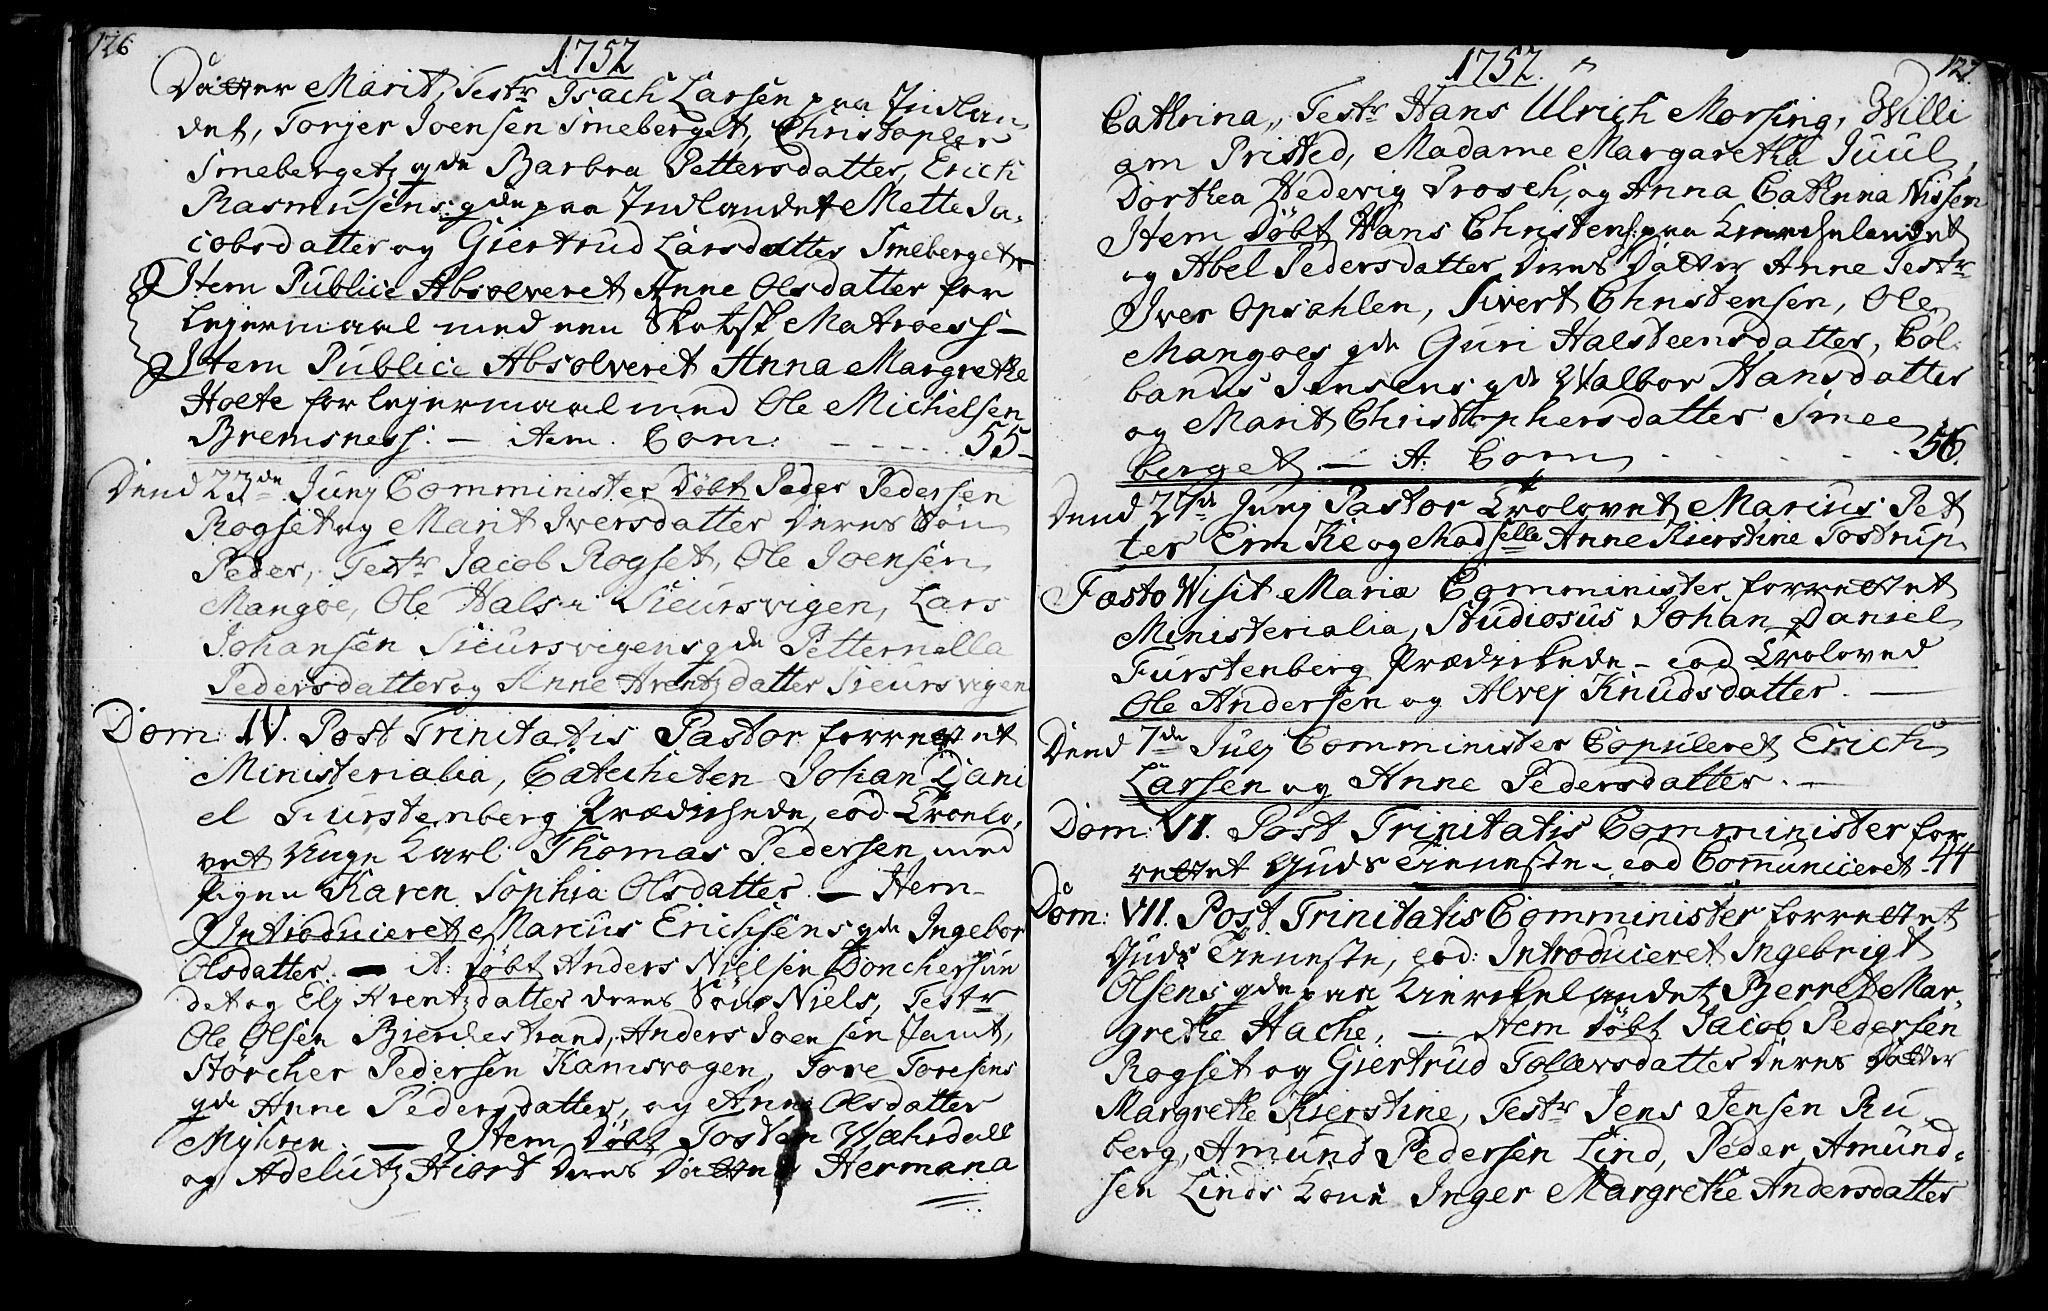 126
1752
Dätter Marit, Testr Isach Larsen paa Indlan
det, Torjer Joensen Smeberget, Christopher
Smebergetz qde Barbra Pettersdatter, Erich
Rasmusens qde paa Indlandet Mette Ja-
cobsdatter og Giertrud Larsdatter Smeberget
Item Publice Absolveret Anne Olsdatter for
Lejermaal med een Skotsk Matroess -
Item Publice Absolveret Anna Margrethe
Holte for lejermaal med Ole Michelsen
Bremsness: - item. Com: - - - - . . 55 -
Dend 23de Junj Comminister Döbt Peder Pedersen
Rogset og Marit Iversdatter deres Sön
Peder, Testr Jacob Rogset, Ole Joensen
Mangoe, Ole Hals i Sieursvigen, Lars
Johansen Sieursvigens qde Petternella
Pedersdatter og Anne Arentzdatter Sieursvigen
Dom: IV. Post Trinitatis Pastor forrettet
Ministerialia, Catecheten Johan Dani
el Furstenberg Prædichede, eod Troelo,
vet Unge Karl Thomas Pedersen med
Pigen Karen Sophia Olsdatter. - Item
Introduceret Marcus Erichsens qde Ingebor
Olsdatter. - It: döbt Anders Nielsen Doncherssun
det og Elj Arentzdatter deres Sön Niels, Testr
Ole Olsen Bierchestrand, Anders Joensen Jamt,
Störcher Pedersen Kanisvogen, Tore Toresens
qde Anne Pedersdatter, og Anne Olsdatter
Myhren. - Item Döbt Tosten Wæhrdall
og Adelutz Hiort deres Datter Hermana
1752.
127
Cathrina, Testr Hans Ulrich Morsing, Willi
am Pristed, Madame Margaretha Juul,
Dorthea Hedevig Prosch, og Anna Cathrina Nissen
Item Döbt Hans Christens: paa Kierchelandet
og Abel Pedersdatter deres Datter Anne Testr
Iver Opsahlen, Sivert Christensen, Ole
Mangoes qde Guri Halsteensdatter, Col-
banus Jensens qde Walbor Hansdatter
og Marit Christophersdatter Smee
berget. - It: Com . . . . . . 56.
Dend 27de Junj Pastor Trolovet Marius Pet
ter Ermke og Madselle Anne Kierstine Tostrup
Festo Visit Mariæ Comminister forrettet
Ministerialia, Studiosus Johan Daniel
Furstenberg Prædichede - eod Troloved
Ole Andersen og Alvej Knudsdatter. -
Dend 7de Julj Comminister Copuleret Erich
Larsen og Anne Pedersdatter. -
Dom: VI. Post Trinitatis Comminister for
rettet Guds Tienneste -, eod Communiceret - 44
Dom: VII. Post Trinitatis Comminister forrettet
Guds Tienneste, eod: Introduceret Ingebrigt
Olsens qde paa Kierchelandet Berret Mar-
grethe Hache, - Item Döbt Jacob Pedersen
Rogset og Giertrud Tollersdatter deres Datter
Margrethe Kierstine, Testr Jens Jensen Ru
berg, Amund Pedersen Lind, Peder Amund-
sen Linds Kone Inger Margrethe Andersdatter